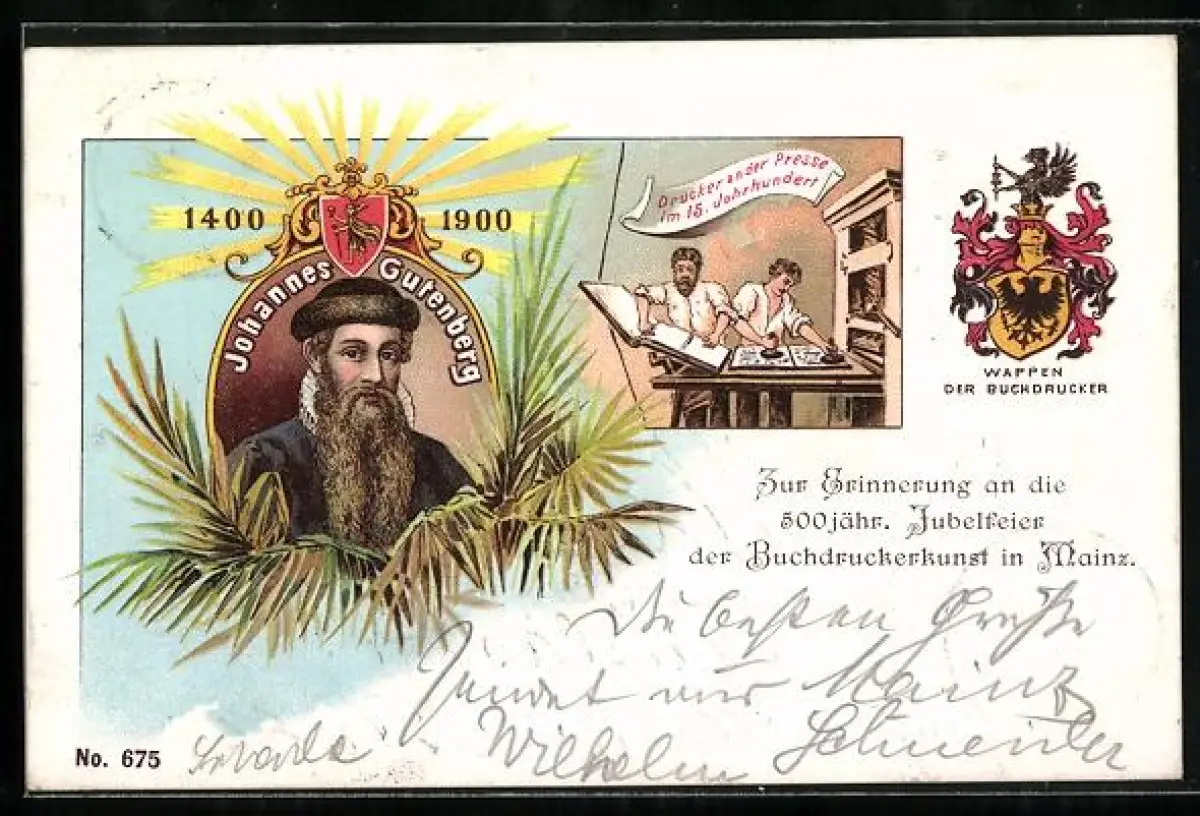 1400 1900
Johannes Gutenberg
Drucker an der Presse
im 15. Jahrhundert
WAPPEN
DER BUCHDRUCKER
Zur Erinnerung an die
500jähr. Jubelfeier
der Buchdruckerkunst in Mainz.
Die besten Grüße
sendet aus Mainz
Wilhelm Schneider
No. 675